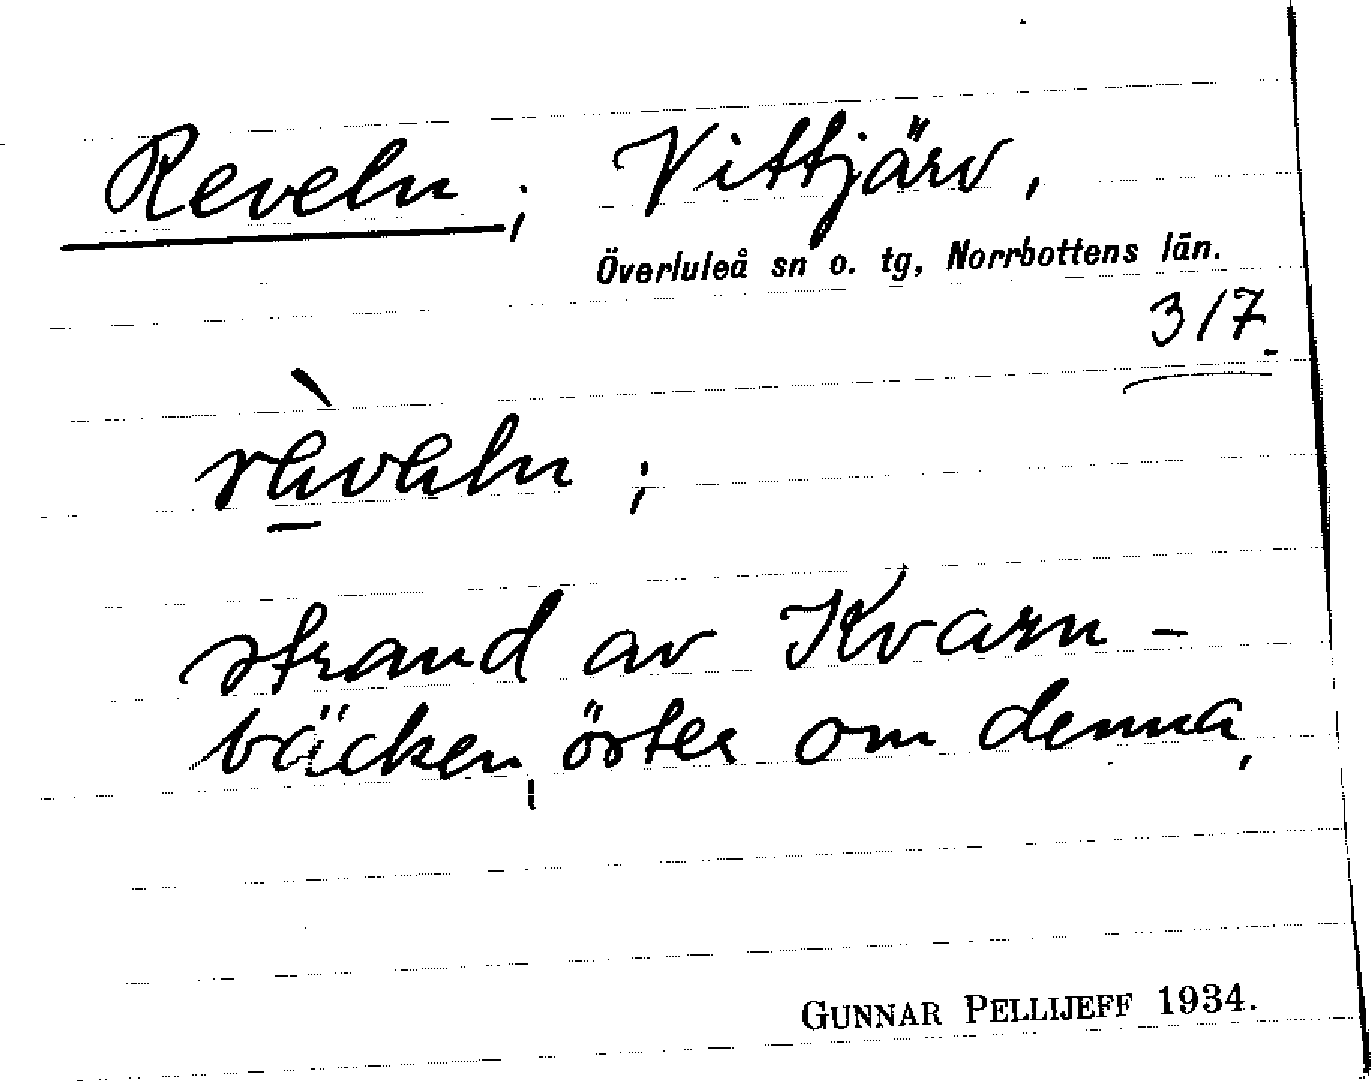 Reveln; Vittjärv,
Överluleå sn o. tg, Norrbottens län.
317.
strand av Kvarn-
bäcken, öster om denna,
GUNNAR PELLIJEFF 1934.